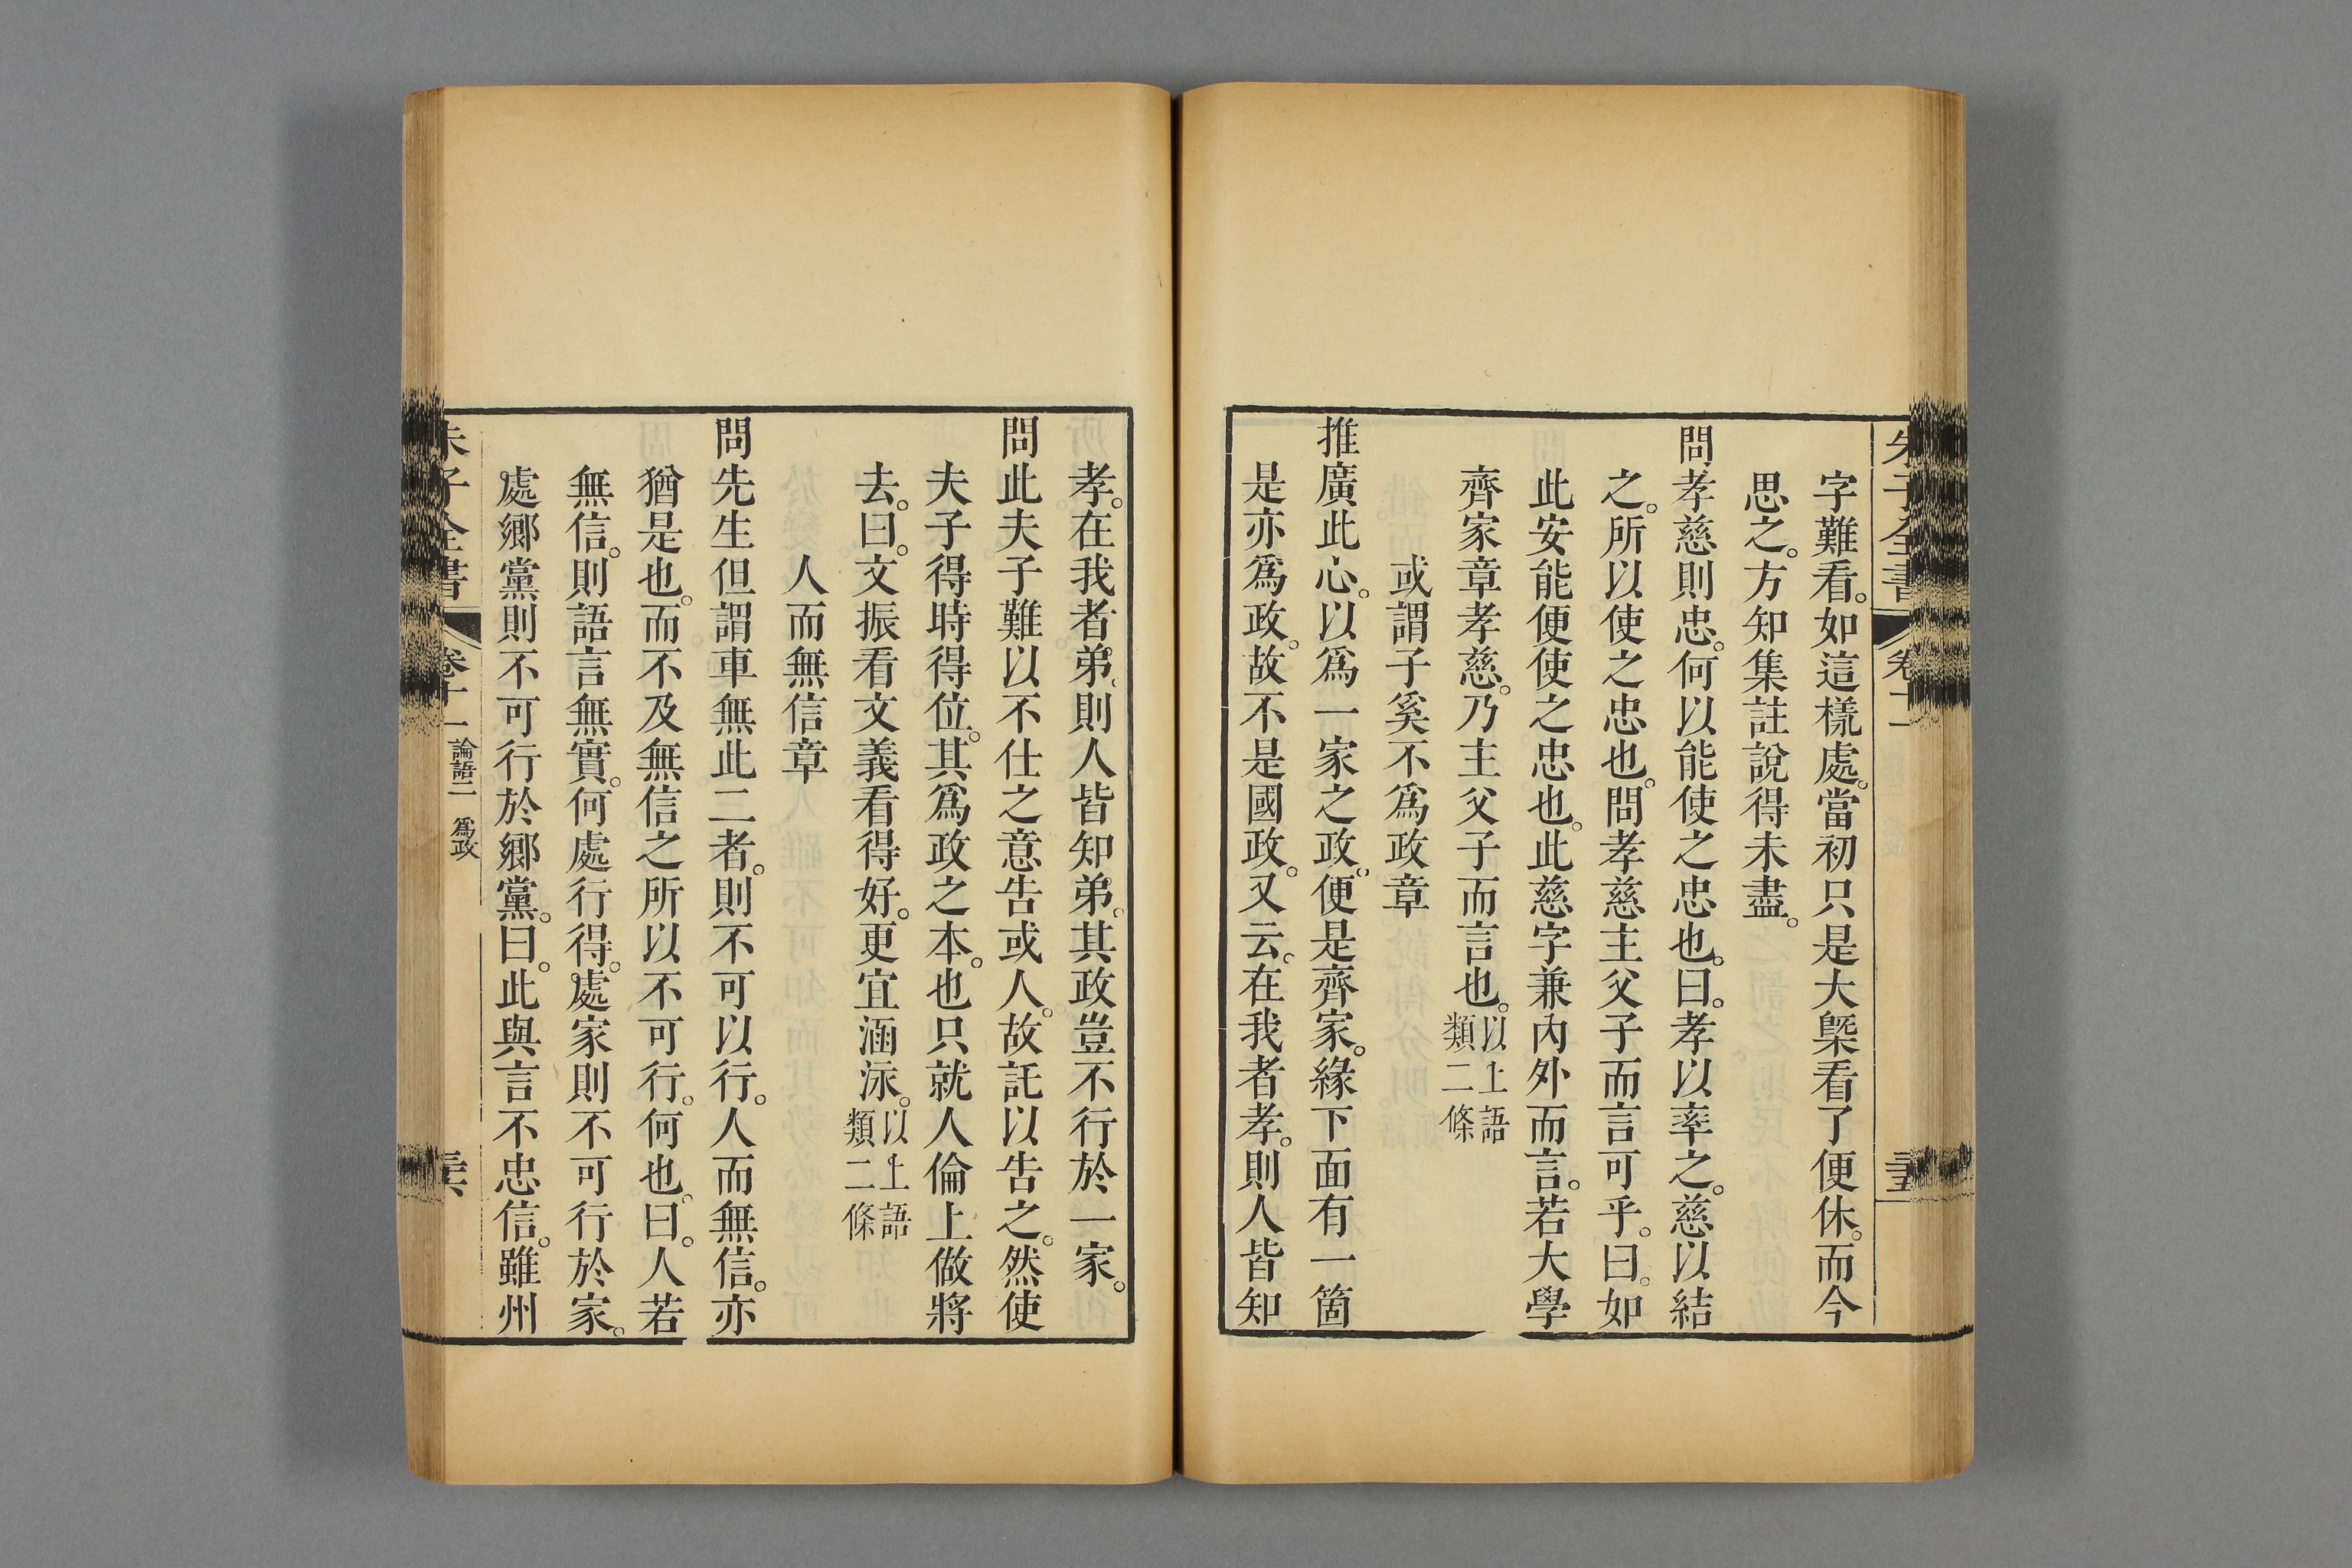 朱子全書 卷十一 三五
字難看。如這樣處。當初只是大槩看了便休。而今
思之。方知集註說得未盡。
問孝慈則忠。何以能使之忠也。曰。孝以率之。慈以結
之。所以使之忠也。問孝慈主父子而言可乎。曰。如
此安能便使之忠也。此慈字兼內外而言。若大學
齊家章孝慈。乃主父子而言也。以上語類二條
或謂子奚不為政章
推廣此心。以為一家之政。便是齊家。緣下面有一箇
是亦為政。故不是國政。又云。在我者孝。則人皆知
孝。在我者弟。則人皆知弟。其政豈不行於一家。
問此夫子難以不仕之意告或人。故託以告之。然使
夫子得時得位。其為政之本。也只就人倫上做將
去。曰。文振看文義看得好。更宜涵泳。以上語類二條
人而無信章
問先生但謂車無此二者。則不可以行。人而無信。亦
猶是也。而不及無信之所以不可行。何也。曰。人若
無信。則語言無實。何處行得。處家則不可行於家。
處鄉黨則不可行於鄉黨。曰。此與言不忠信。雖州
朱子全書 卷十一 論語二 為政 三六